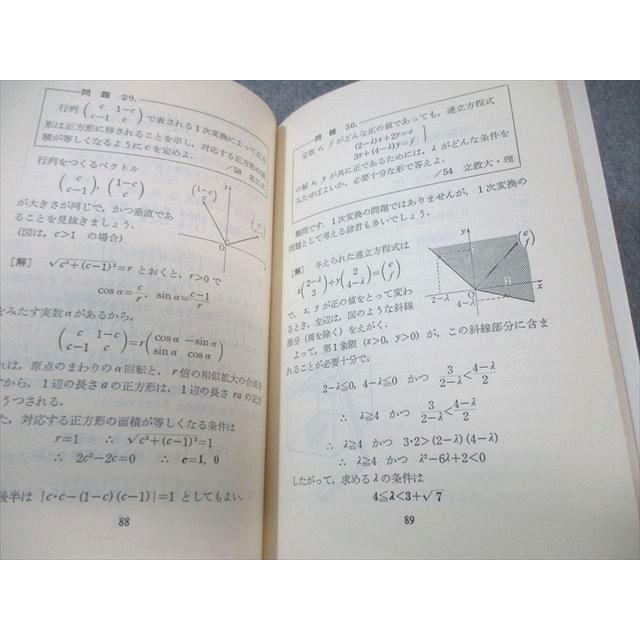 問題 29.
行列 (c 1-c
c-1 c) で表される1次変換によって正方
形は正方形に移されることを示し，対応する正方形の面
積が等しくなるように c を定めよ．
行列をつくるベクトル
(c
c-1), (1-c
c)
が大きさが同じで，かつ垂直であ
ることを見抜きましょう．
(図は，c>1 の場合)
(1-c
c)
y
O
x
〔解〕 √c²+(c-1)²=r とおくと，r>0 で
cos α=c/r, sin α=(c-1)/r
をみたす実数 α があるから，
(c 1-c
c-1 c)=r(cos α -sin α
sin α cos α)
れは，原点のまわりの α 回転と，r 倍の相似拡大の合成を
すから，1辺の長さ a の正方形は，1辺の長さ ra の正方
うつされる．
た，対応する正方形の面積が等しくなる条件は
r=1 ∴ √c²+(c-1)²=1
∴ 2c²-2c=0 ∴ c=1, 0
後半は |c·c-(1-c)(c-1)|=1 としてもよい．
88
問題 30.
変数 e, f がどんな正の値であっても，連立方程式
(2-λ)x+2y=e
3x+(4-λ)y=f }
の解 x, y が共に正であるためには，λ がどんな条件を
みたせばよいか．必要十分な形で答えよ．
/54 立教大・理
難問です．1次変換の問題ではありませんが，1次変換の
問題として考える諸君も多いでしょう．
〔解〕 与えられた連立方程式は
x(2-λ
3)+y(2
4-λ)=(e
f)
で，x, y が正の値をとって変わ
るとき，左辺は，図のような斜線
部分（周を除く）をえがく．
y
3
(e
f)
2
2-λ
4-λ
O
x
よって，第1象限 (x>0, y>0) が，この斜線部分に含ま
れることが必要十分で，
2-λ≦0, 4-λ≦0 かつ 3/(2-λ)<(4-λ)/2
∴ λ≧4 かつ 3/(2-λ)<(4-λ)/2
∴ λ≧4 かつ 3·2>(2-λ)(4-λ)
∴ λ≧4 かつ λ²-6λ+2<0
したがって，求める λ の条件は
4≦λ<3+√7
89